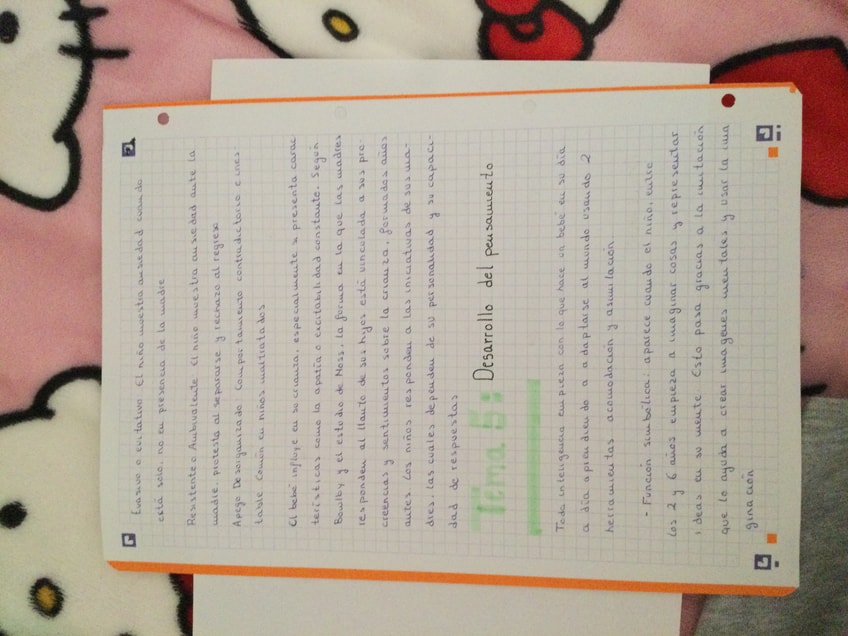 Evasivo o evitativo El niño muestra ansiedad cuando
está solo, no en presencia de la madre
Resistente o Ambivalente El niño muestra ansiedad ante la
madre, protesta al separarse y rechazo al regreso
Apego Desorganizado Comportamiento contradictorio e ines
table Común en niños maltratados
El bebé influye en su crianza, especialmente si presenta carac
terísticas como la apatía o excitabilidad constante. Según
Bowlby y el estudio de Moss, la forma en la que las madres
responden al llanto de sus hijos está vinculada a sus pro
creencias y sentimientos sobre la crianza, formados años
antes Los niños responden a las iniciativas de sus ma-
dres, las cuales dependen de su personalidad y su capaci-
dad de respuestas
Tema 5: Desarrollo del pensamiento
Toda inteligencia empieza con lo que hace un bebé en su día
a día aprendiendo a adaptarse al mundo usando 2
herramientas acomodación y asimilación.
- Función simbólica aparece cuando el niño, entre
los 2 y 6 años empieza a imaginar cosas y representar
ideas en su mente Esto pasa gracias a la imitación
que lo ayuda a crear imágenes mentales y usar la ima
ginación